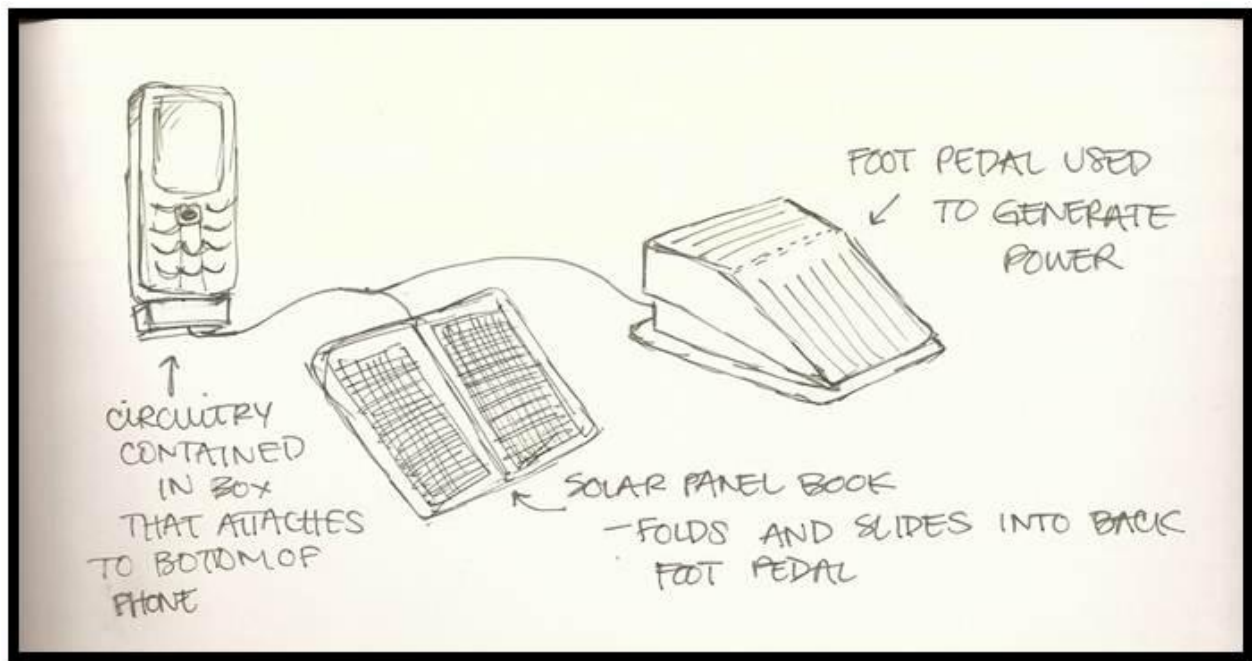 FOOT PEDAL USED
TO GENERATE
POWER
CIRCUITRY
CONTAINED
IN BOX
THAT ATTACHES
TO BOTTOM OF
PHONE
SOLAR PANEL BOOK
- FOLDS AND SLIDES INTO BACK
FOOT PEDAL